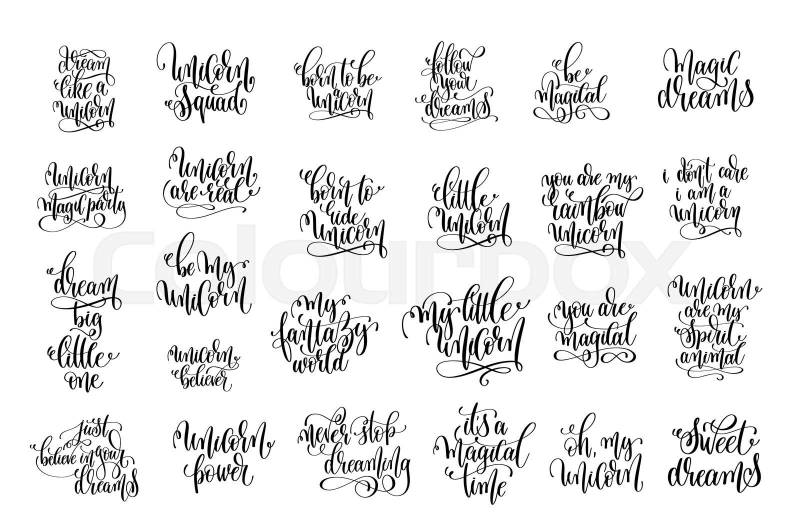 dream
like a
unicorn
unicorn
squad
born to be
a
unicorn
follow
your
dreams
be
magical
magic
dreams
unicorn
magic party
unicorn
are real
born to
ride
unicorn
little
unicorn
you are my
rainbow
unicorn
i don't care
i am a
unicorn
dream
big
little
one
be my
unicorn
unicorn
believer
my
fantazy
world
my little
unicorn
you are
magical
unicorn
are my
spirit
animal
just
believe in your
dreams
unicorn
power
never stop
dreaming
it's a
magical
time
oh, my
unicorn
sweet
dreams
Colourbox